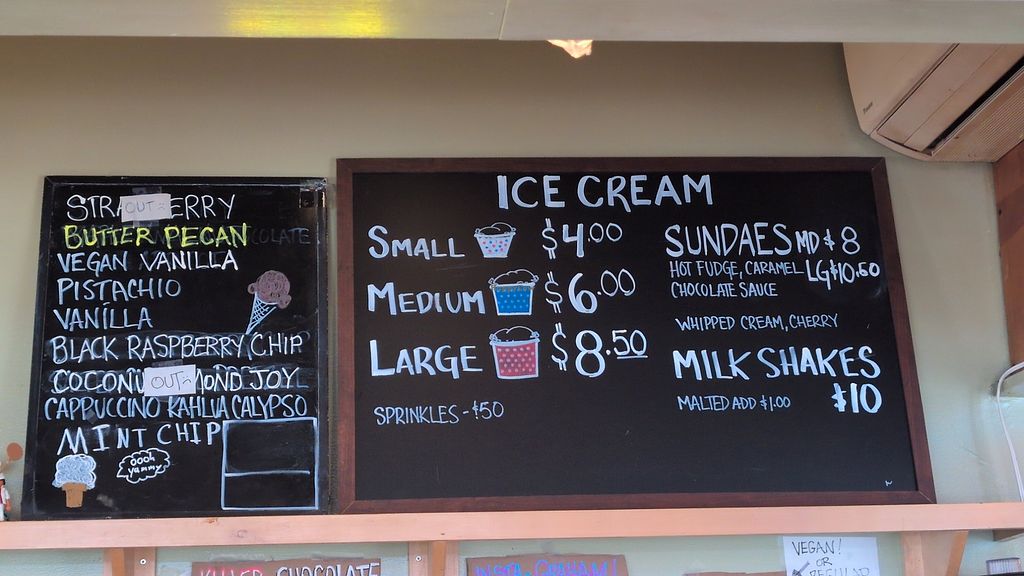 STR OUT ERRY
BUTTER PECAN
VEGAN VANILLA
PISTACHIO
VANILLA
BLACK RASPBERRY CHIP
COCONU OUT MOND JOY
CAPPUCCINO KAHLUA CALYPSO
MINT CHIP
oooh
yummy
ICE CREAM
SMALL $4.00
MEDIUM $6.00
LARGE $8.50
SPRINKLES - $50
SUNDAES MD $8
HOT FUDGE, CARAMEL LG $10.50
CHOCOLATE SAUCE
WHIPPED CREAM, CHERRY
MILK SHAKES
$10
MALTED ADD $1.00
KILLER CHOCOLATE
INSTA-GRAHAM!
VEGAN!
OR
REGULAR